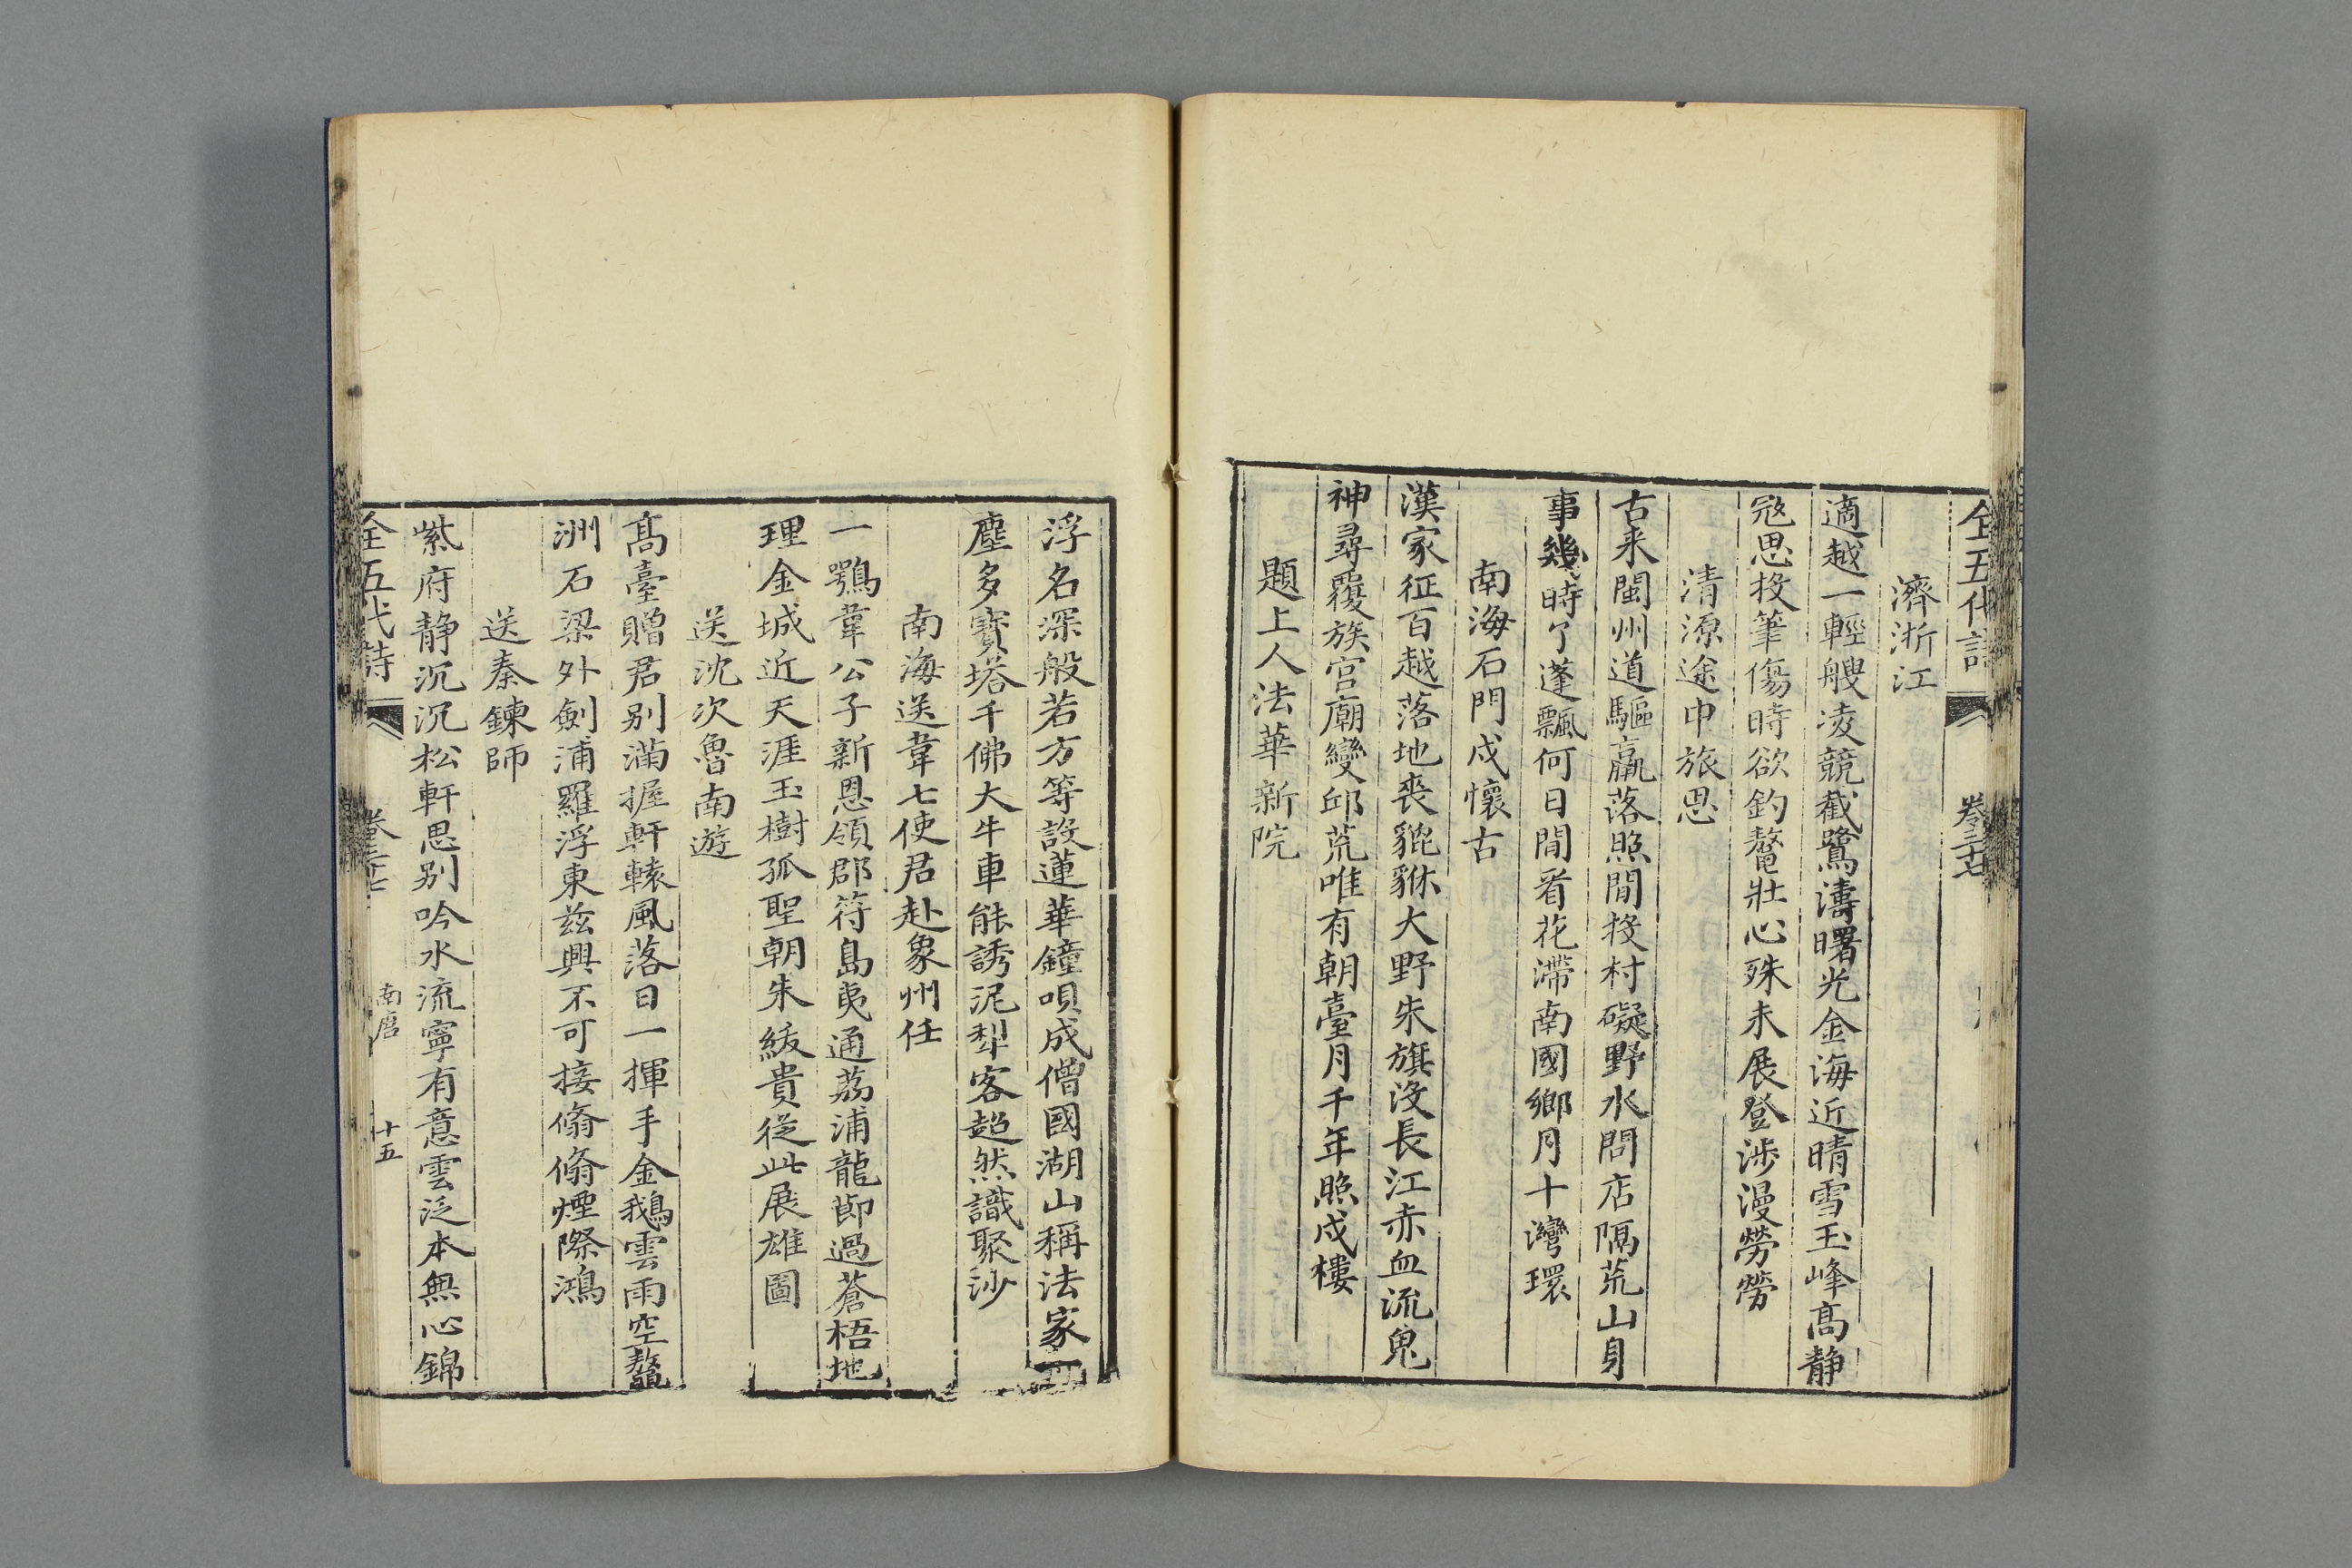 全五代詩 卷三十七
濟浙江
適越一輕艘凌兢截鷺濤曙光金海近晴雪玉峰高静
寇思投筆傷時欲釣鼇壯心殊未展登涉漫勞勞
清源途中旅思
古来閩州道驅羸落照間投村礙野水問店隔荒山身
事幾時了蓬飄何日閒看花滯南國鄉月十灣環
南海石門戍懷古
漢家征百越落地喪貔貅大野朱旗沒長江赤血流鬼
神尋覆族宮廟變邱荒唯有朝臺月千年照戍樓
題上人法華新院
浮名深般若方等設蓮華鐘唄成僧國湖山稱法家一
塵多寶塔千佛大牛車能誘泥犁客超然識聚沙
南海送韋七使君赴象州任
一鶚韋公子新恩領郡符島夷通荔浦龍節過蒼梧地
理金城近天涯玉樹孤聖朝朱紱貴從此展雄圖
送沈次魯南遊
高臺贈君别滿握軒轅風落日一揮手金鵝雲雨空鼇
洲石梁外劍浦羅浮東茲興不可接翛翛煙際鴻
送秦鍊師
紫府静沉沉松軒思别吟水流寧有意雲泛本無心錦
全五代詩 卷三十七 南唐 十五